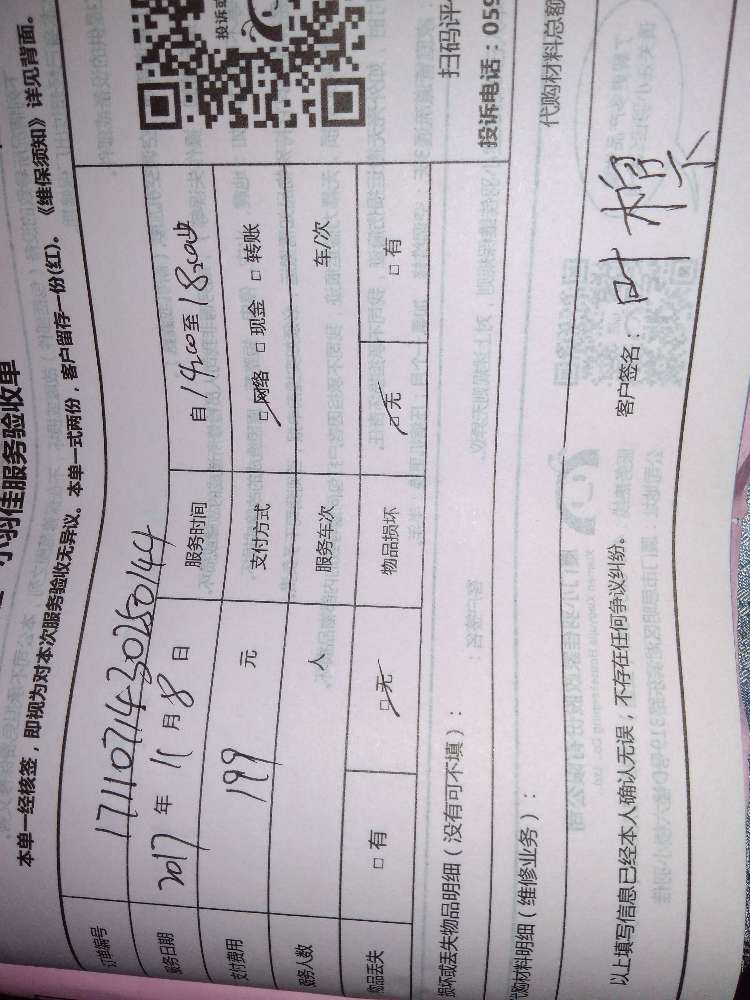 小羽佳服务验收单
本单一经核签，即视为对本次服务验收无异议。本单一式两份，客户留存一份(红)。《维保须知》详见背面。
订单编号 17110714430250144
服务日期 2017 年 11 月 8 日 服务时间 自 14:00 至 18:00
支付费用 199 元 支付方式 网络 现金 转账
服务人数 人 服务车次 车/次
物品丢失 有 无 物品损坏 无 有
损坏或丢失物品明细（没有可不填）：
代购材料明细（维修业务）： 代购材料总额
以上填写信息已经本人确认无误，不存在任何争议纠纷。 客户签名：叶
投诉或
扫码评
投诉电话：059